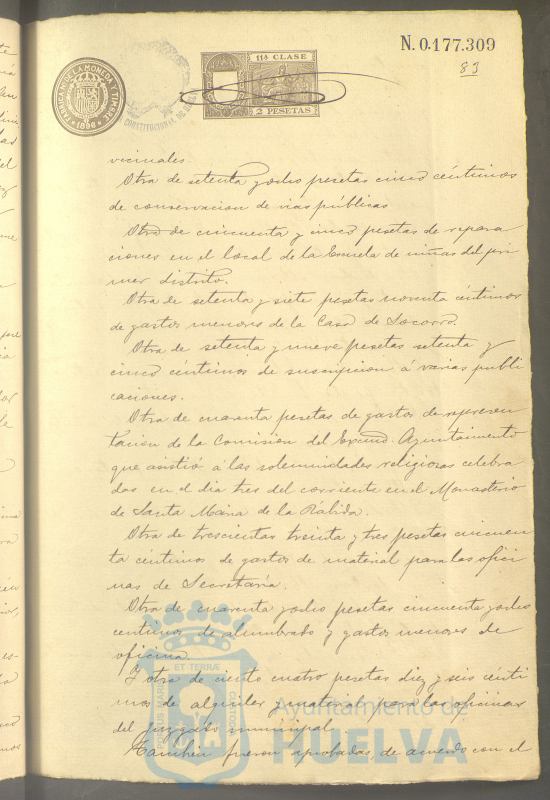 N. 0.177.309
83
11ª CLASE
2 PESETAS
FABRICA DE LA MONEDA Y TIMBRE
1896
CONSTITUCIONAL DE
vecinales.
Otra de setenta y ocho pesetas cinco céntimos
de conservacion de vias públicas
Otra de cincuenta y cinco pesetas de repara
ciones en el local de la Escuela de niñas del pri
mer distrito.
Otra de setenta y siete pesetas noventa céntimos
de gastos menores de la Casa de Socorro.
Otra de setenta y nueve pesetas setenta y
cinco céntimos de suscripcion á varias publi
caciones.
Otra de cuarenta pesetas de gastos de represen
tacion de la Comision del Excmo. Ayuntamiento
que asistió á las solemnidades religiosas celebra
das en el dia tres del corriente en el Monasterio
de Santa Maria de la Rábida.
Otra de trescientas treinta y tres pesetas cincuen
ta céntimos de gastos de material para las ofici
nas de Secretaría.
Otra de cuarenta y ocho pesetas cincuenta y ocho
centimos de alumbrado y gastos menores de
oficina.
Y otra de ciento cuatro pesetas diez y seis cénti
mos de alquiler y material para las oficinas
del juzgado municipal.
Tambien fueron aprobadas, de acuerdo con el
PORTUS MARIS ET TERRÆ CUSTODIA
Ayuntamiento de
HUELVA